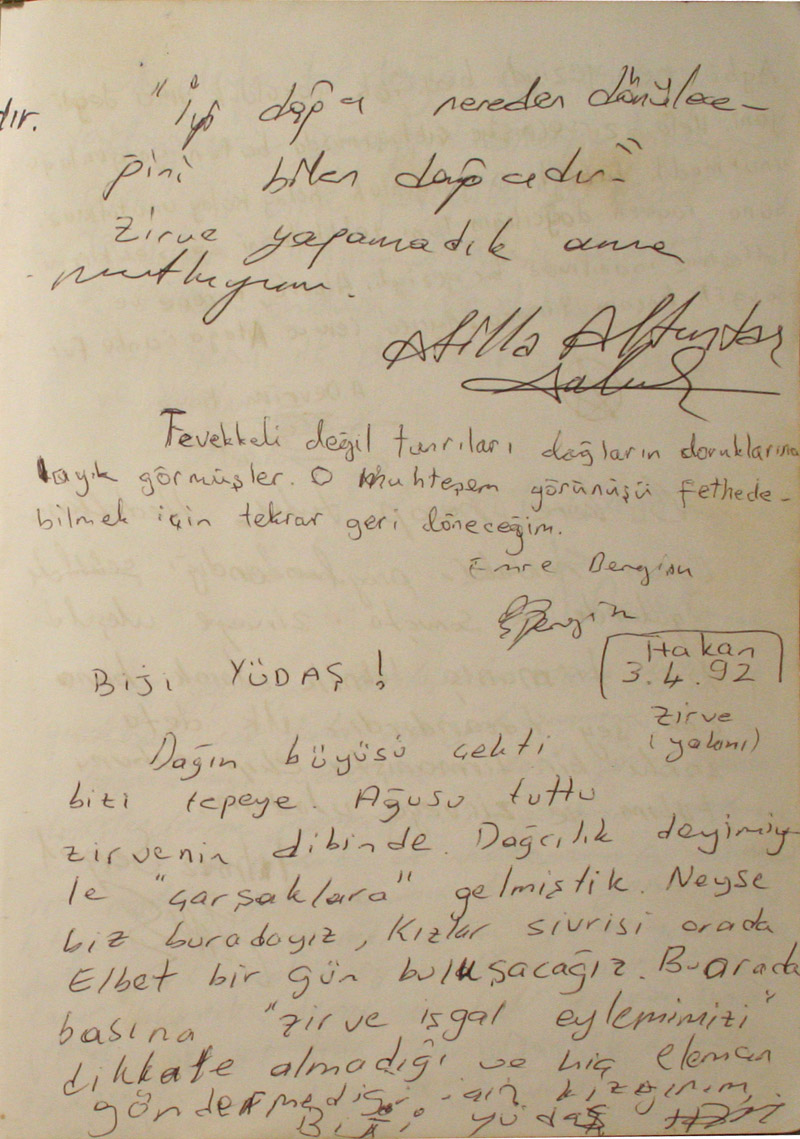 dır.
"İyi dağcı nereden dönülece-
ğini bilen dağcıdır"
zirve yapamadık ama
mutluyum.
Atilla
Tevekkeli değil tanrıları dağların doruklarına
layık görmüşler. O muhteşem görünüşü fethede-
bilmek için tekrar geri döneceğim.
Emre Bergisu
Hakan
3.4.92
Biji YÜDAŞ!
zirve
(yakını)
Dağın büyüsü çekti
bizi tepeye. Ağusu tuttu
zirvenin dibinde. Dağcılık deyimiy-
le "çarşaklara" gelmiştik. Neyse
biz buradayız, Kızlar sivrisi orada
Elbet bir gün buluşacağız. Bu arada
basına "zirve işgal eylemimizi"
dikkate almadığı ve hiç eleman
göndermediği için kızgınım.
Biji yüdaş